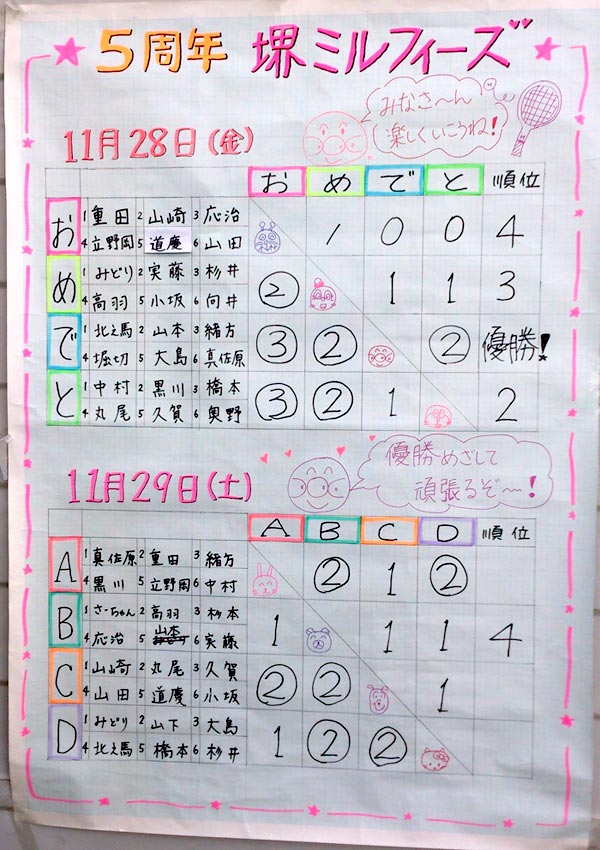 5周年 堺ミルフィーズ
みなさ〜ん
楽しくいこうね!
11月28日(金)
お め で と 順位
お 1 重田 2 山崎 3 応治 1 0 0 4
4 立野岡 5 道慶 6 山田
め 1 みどり 2 実藤 3 杉井 ② 1 1 3
4 高羽 5 小坂 6 向井
で 1 北之馬 2 山本 3 緒方 ③ ② ② 優勝!
4 堀切 5 大島 6 真佐原
と 1 中村 2 黒川 3 橋本 ③ ② 1 2
4 丸尾 5 久賀 6 奥野
優勝めざして
頑張るぞ〜!
11月29日(土)
A B C D 順位
A 1 真佐原 2 重田 3 緒方 ② 1 ②
4 黒川 5 立野岡 6 中村
B 1 さーちゃん 2 高羽 3 杉本 1 1 1 4
4 応治 5 山本 6 実藤
C 1 山崎 2 丸尾 3 久賀 ② ② 1
4 山田 5 道慶 6 小坂
D 1 みどり 2 山下 3 大島 1 ② ②
4 北之馬 5 橋本 6 杉井